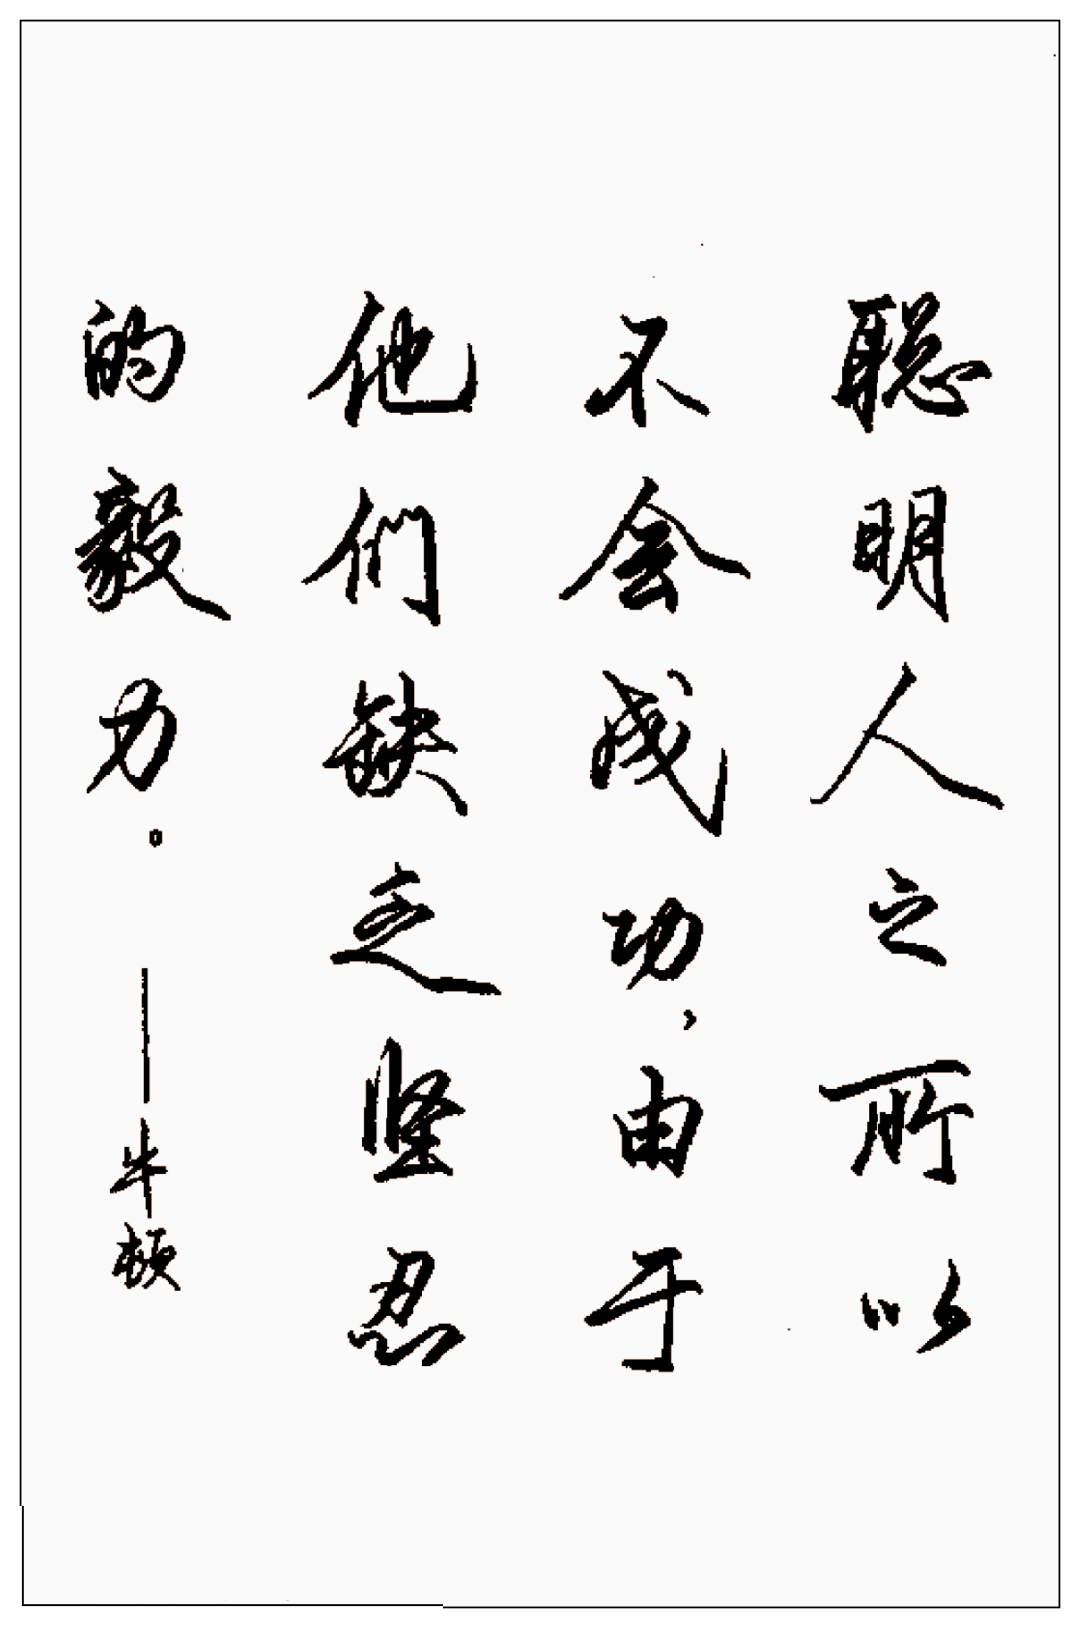 聪明人之所以
不会成功，由于
他们缺乏坚忍
的毅力。——牛顿